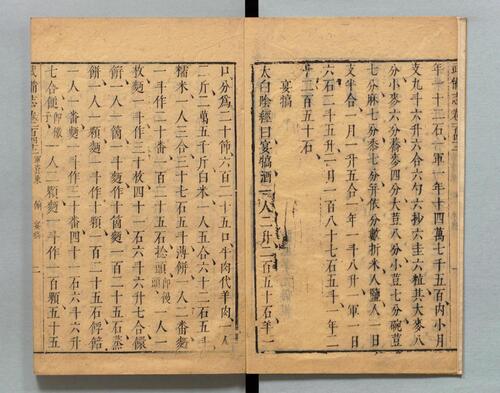 年一十二石、一軍一年十四萬七千五百内小月
支九斗六升六合六勺六抄六圭六粒其大麥八
分小麥六分蕎麥四分大荳八分小荳七分碗荳
七分麻七分黍七分并依分數折米人鹽人一日
支半合、一月一升五合一年一斗八升、一軍一日
六石二斗五升一月一百八十七石五斗、一年二
千二百五十石、
宴犒
太白陰經曰宴犒酒一人二升二百五十石羊一
口分爲二十節六百二十五口牛肉代羊肉、一人
二斤二萬五千斤白米一人五合六十二石五斗
糯米一人三合三十七石五斗薄餅一人二番麵
一斗作二十番一百二十五石捻頭 一人一
枚麵一斗作三十枚四十一石六斗六升七合
一人一箇一斗麵作十箇麵一百二十五石蒸
餅一人一顆麵一斗作十顆一百二十五石
一人一番麵一斗作三十番四十一石六斗六升
七合 一人二顆麵一斗作一百顆五十五
武備志卷 軍資乘 餉 宴犒 一